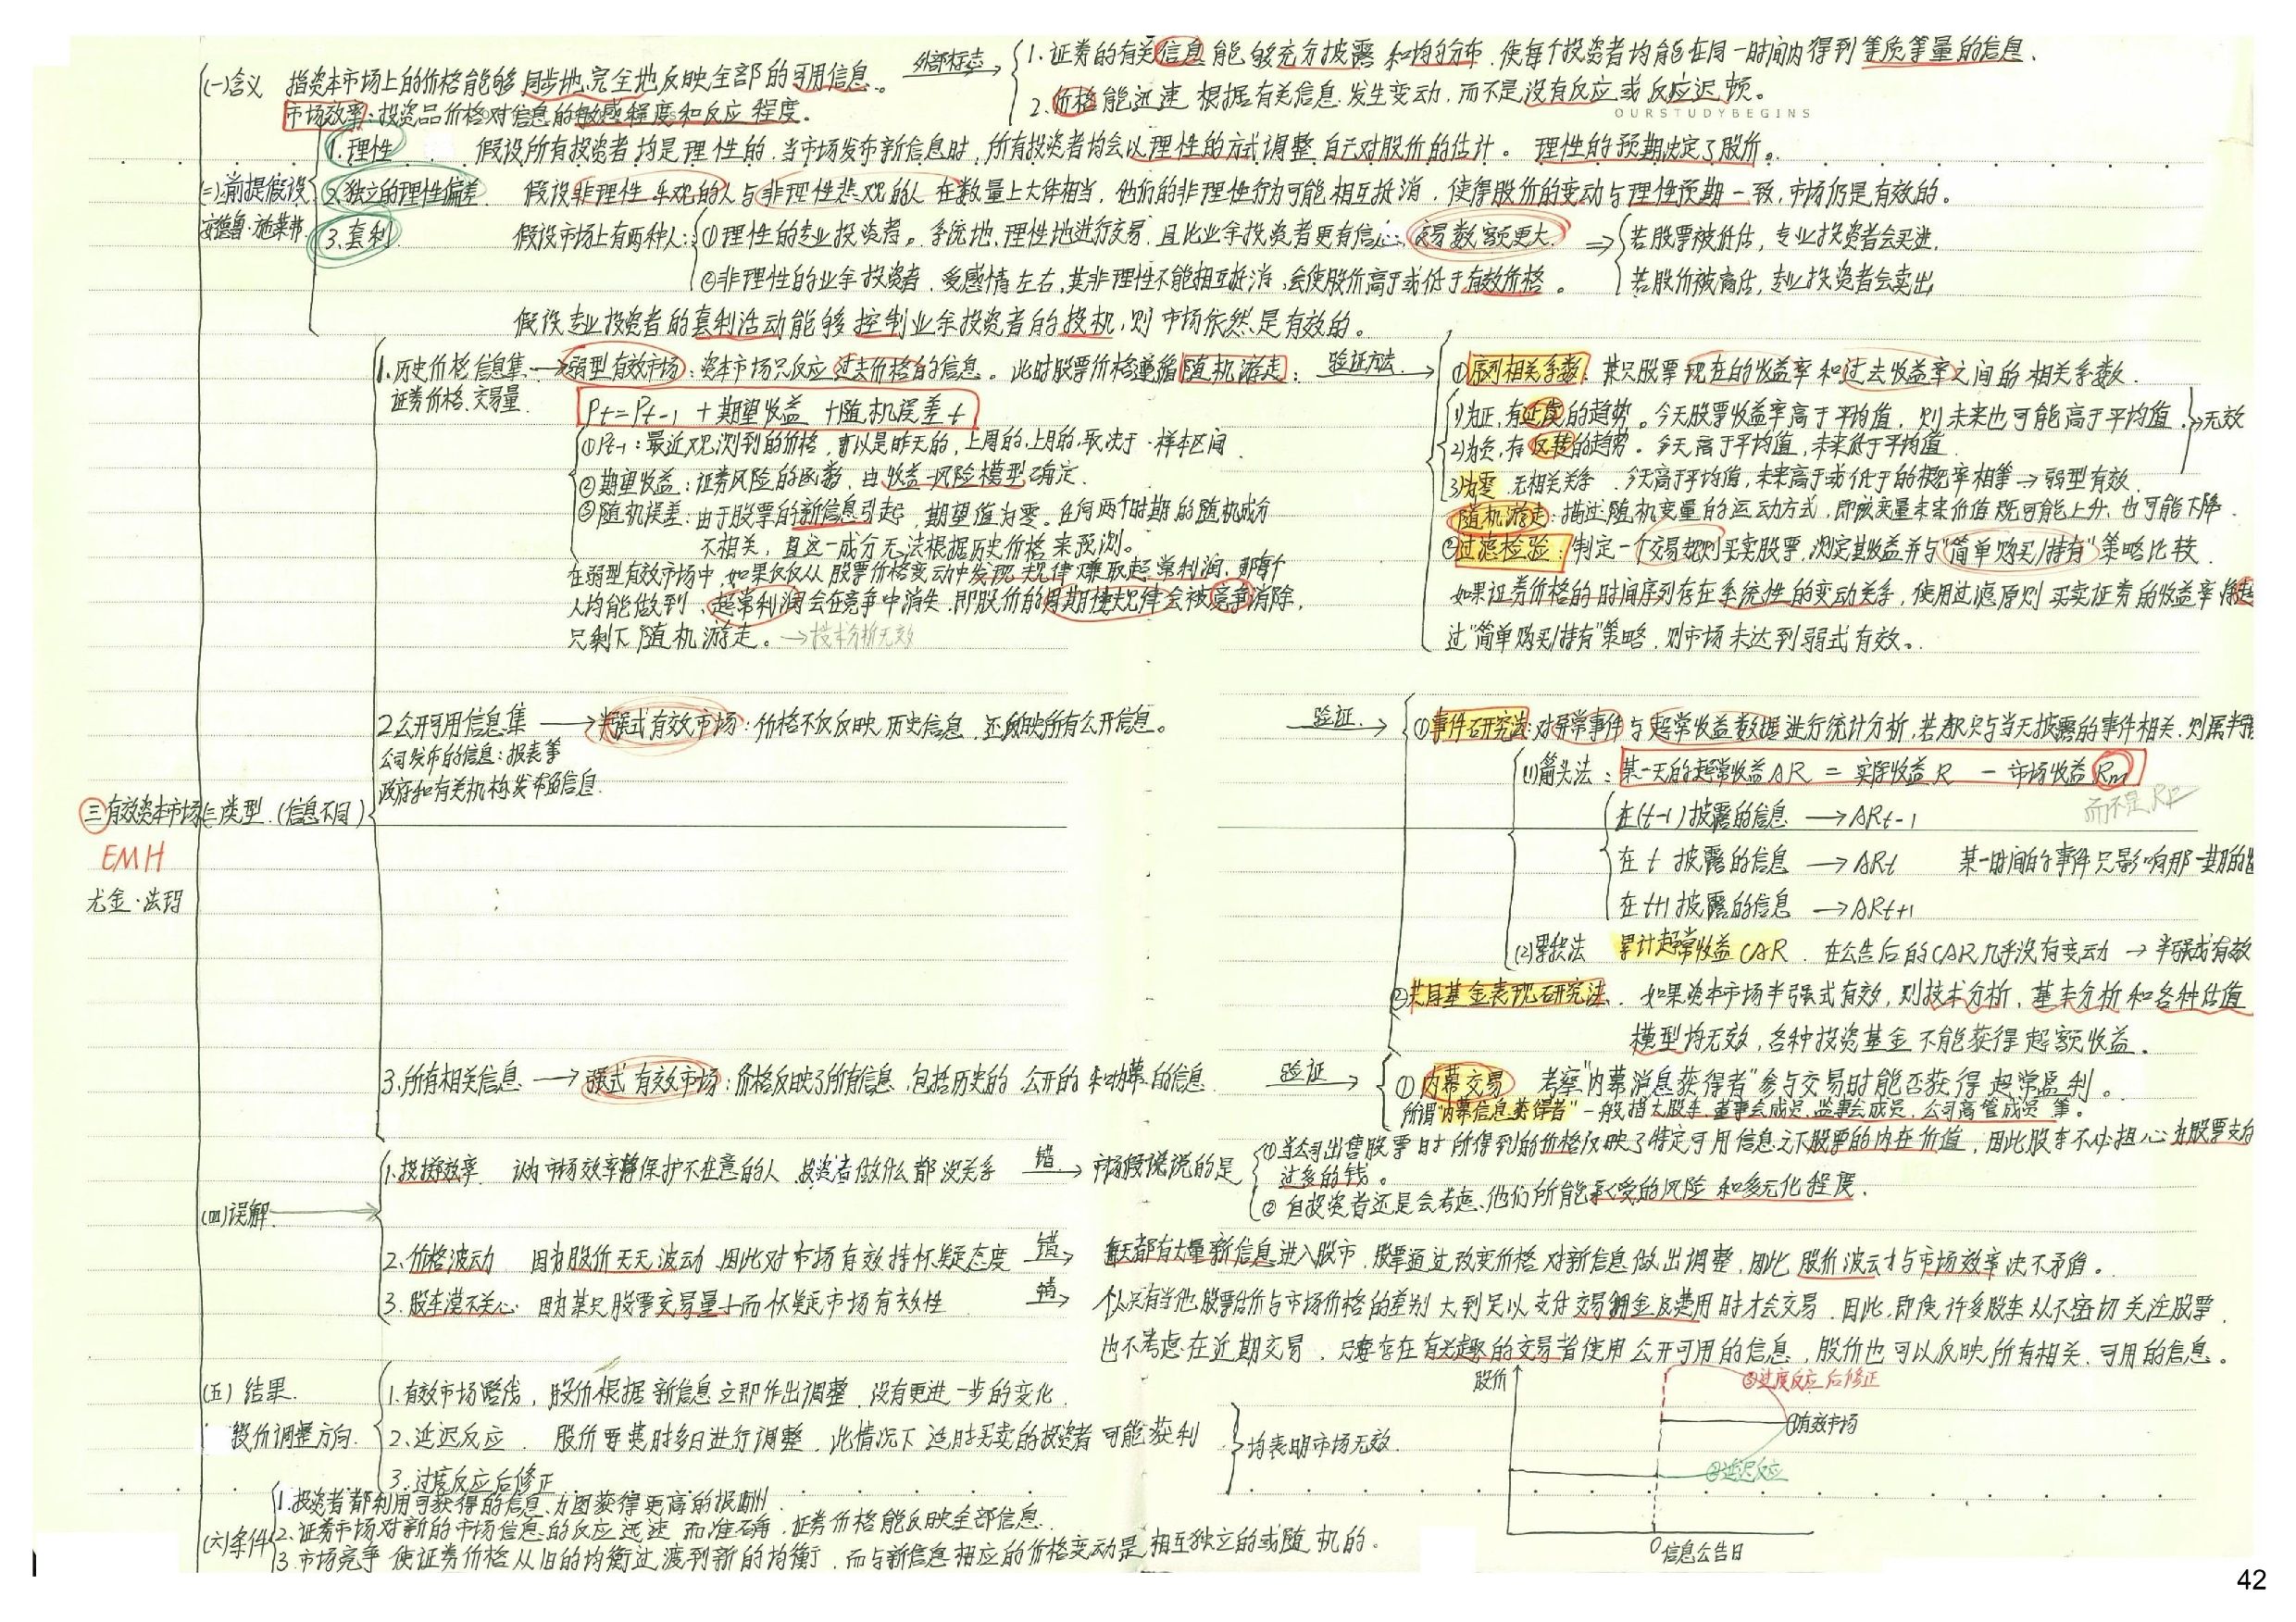 (一)含义 指资本市场上的价格能够同步地、完全地反映全部的可用信息。
市场效率:投资品价格对信息的敏感程度和反应程度。
外部标志
1.证券的有关信息能够充分披露和均匀分布,使每个投资者均能在同一时间内得到等质等量的信息.
2.价格能迅速根据有关信息发生变动,而不是没有反应或反应迟顿。
OURSTUDYBEGINS
(二)前提假设
安德鲁·施莱弗
1.理性 假设所有投资者均是理性的,当市场发布新信息时,所有投资者均会以理性的方式调整自己对股价的估计。理性的预期决定了股价。
2.独立的理性偏差 假设非理性乐观的人与非理性悲观的人在数量上大体相当,他们的非理性行为可能相互抵消,使得股价的变动与理性预期一致,市场仍是有效的。
3.套利 假设市场上有两种人:①理性的专业投资者。系统地、理性地进行交易,且比业余投资者更有信心,交易数额更大.
②非理性的业余投资者,受感情左右,其非理性不能相互抵消,会使股价高于或低于有效价格。
⇒若股票被低估,专业投资者会买进.
若股价被高估,专业投资者会卖出
假设专业投资者的套利活动能够控制业余投资者的投机,则市场依然是有效的。
三 有效资本市场
EMH
尤金·法玛
(三)类型(信息不同)
1.历史价格信息集→弱型有效市场:资本市场只反应过去价格的信息。此时股票价格遵循随机游走:
证券价格、交易量.
Pt=Pt-1+期望收益+随机误差t
①Pt-1:最近观测到的价格,可以是昨天的,上周的,上月的,取决于样本区间.
②期望收益:证券风险的函数,由收益-风险模型确定.
③随机误差:由于股票的新信息引起,期望值为零。任何两个时期的随机成分
不相关,且这一成分无法根据历史价格来预测。
在弱型有效市场中,如果仅仅从股票价格变动中发现规律赚取超常利润,那每个
人均能做到,超常利润会在竞争中消失.即股价的周期性规律会被竞争消除,
只剩下随机游走。→技术分析无效
验证方法→
①序列相关系数:某只股票现在的收益率和过去收益率之间的相关系数.
1)为正,有延续的趋势。今天股票收益率高于平均值,则未来也可能高于平均值.
2)为负,有反转的趋势。今天高于平均值,未来低于平均值
无效
3)为零 无相关关系.今天高于平均值,未来高于或低于的概率相等→弱型有效.
随机游走:描述随机变量的运动方式,即该变量未来价值既可能上升,也可能下降.
②过滤检验:制定一个交易规则买卖股票,测定其收益并与"简单购买/持有"策略比较.
如果证券价格的时间序列存在系统性的变动关系,使用过滤原则买卖证券的收益率将超
过"简单购买/持有"策略,则市场未达到弱式有效。
2.公开可用信息集→半强式有效市场:价格不仅反映历史信息,还反映所有公开信息。
公司发布的信息:报表等
政府和有关机构发布的信息.
验证→
①事件研究法:对异常事件与超常收益数据进行统计分析,若AR只与当天披露的事件相关,则属半强
(1)箭头法:某一天的超常收益AR=实际收益R-市场收益Rm
而不是RF
在(t-1)披露的信息→ARt-1
在t披露的信息→ARt 某一时间的事件只影响那一期的
在t+1披露的信息→ARt+1
(2)累积法 累计超常收益CAR.在公告后的CAR几乎没有变动→半强式有效
②共同基金表现研究法.如果资本市场半强式有效,则技术分析、基本分析和各种估值
模型均无效,各种投资基金不能获得超额收益.
3.所有相关信息→强式有效市场:价格反映了所有信息,包括历史的、公开的和内幕的信息
验证→
①内幕交易 考察"内幕消息获得者"参与交易时能否获得超常盈利。
所谓"内幕信息获得者"一般指大股东、董事会成员、监事会成员、公司高管成员等。
(四)误解.
1.投掷效率 认为市场效率将保护不在意的人,投资者做什么都没关系 错→市场假说说的是
①当公司出售股票时所得到的价格反映了特定可用信息之下股票的内在价值,因此股东不必担心为股票支付
过多的钱。
②但投资者还是会考虑他们所能承受的风险和多元化程度.
2.价格波动 因为股价天天波动,因此对市场有效持怀疑态度 错→每天都有大量新信息进入股市,股票通过改变价格对新信息做出调整,因此股价波动与市场效率决不矛盾。
3.股东漠不关心 因为某只股票交易量小而怀疑市场有效性 错→个人只有当他股票估价与市场价格的差别大到足以支付交易佣金及费用时才会交易.因此,即使许多股东从不密切关注股票,
也不考虑在近期交易,只要存在有兴趣的交易者使用公开可用的信息,股价也可以反映所有相关、可用的信息。
(五)结果.
股价调整方向.
1.有效市场路线,股价根据新信息立即作出调整,没有更进一步的变化.
2.延迟反应.股价要费时多日进行调整.此情况下适时买卖的投资者可能获利
3.过度反应后修正
均表明市场无效.
股价
③过度反应后修正
①有效市场
②延迟反应
0信息公告日
(六)条件
1.投资者都利用可获得的信息力图获得更高的报酬.
2.证券市场对新的市场信息的反应迅速而准确,证券价格能反映全部信息.
3.市场竞争使证券价格从旧的均衡过渡到新的均衡,而与新信息相应的价格变动是相互独立的或随机的。
42